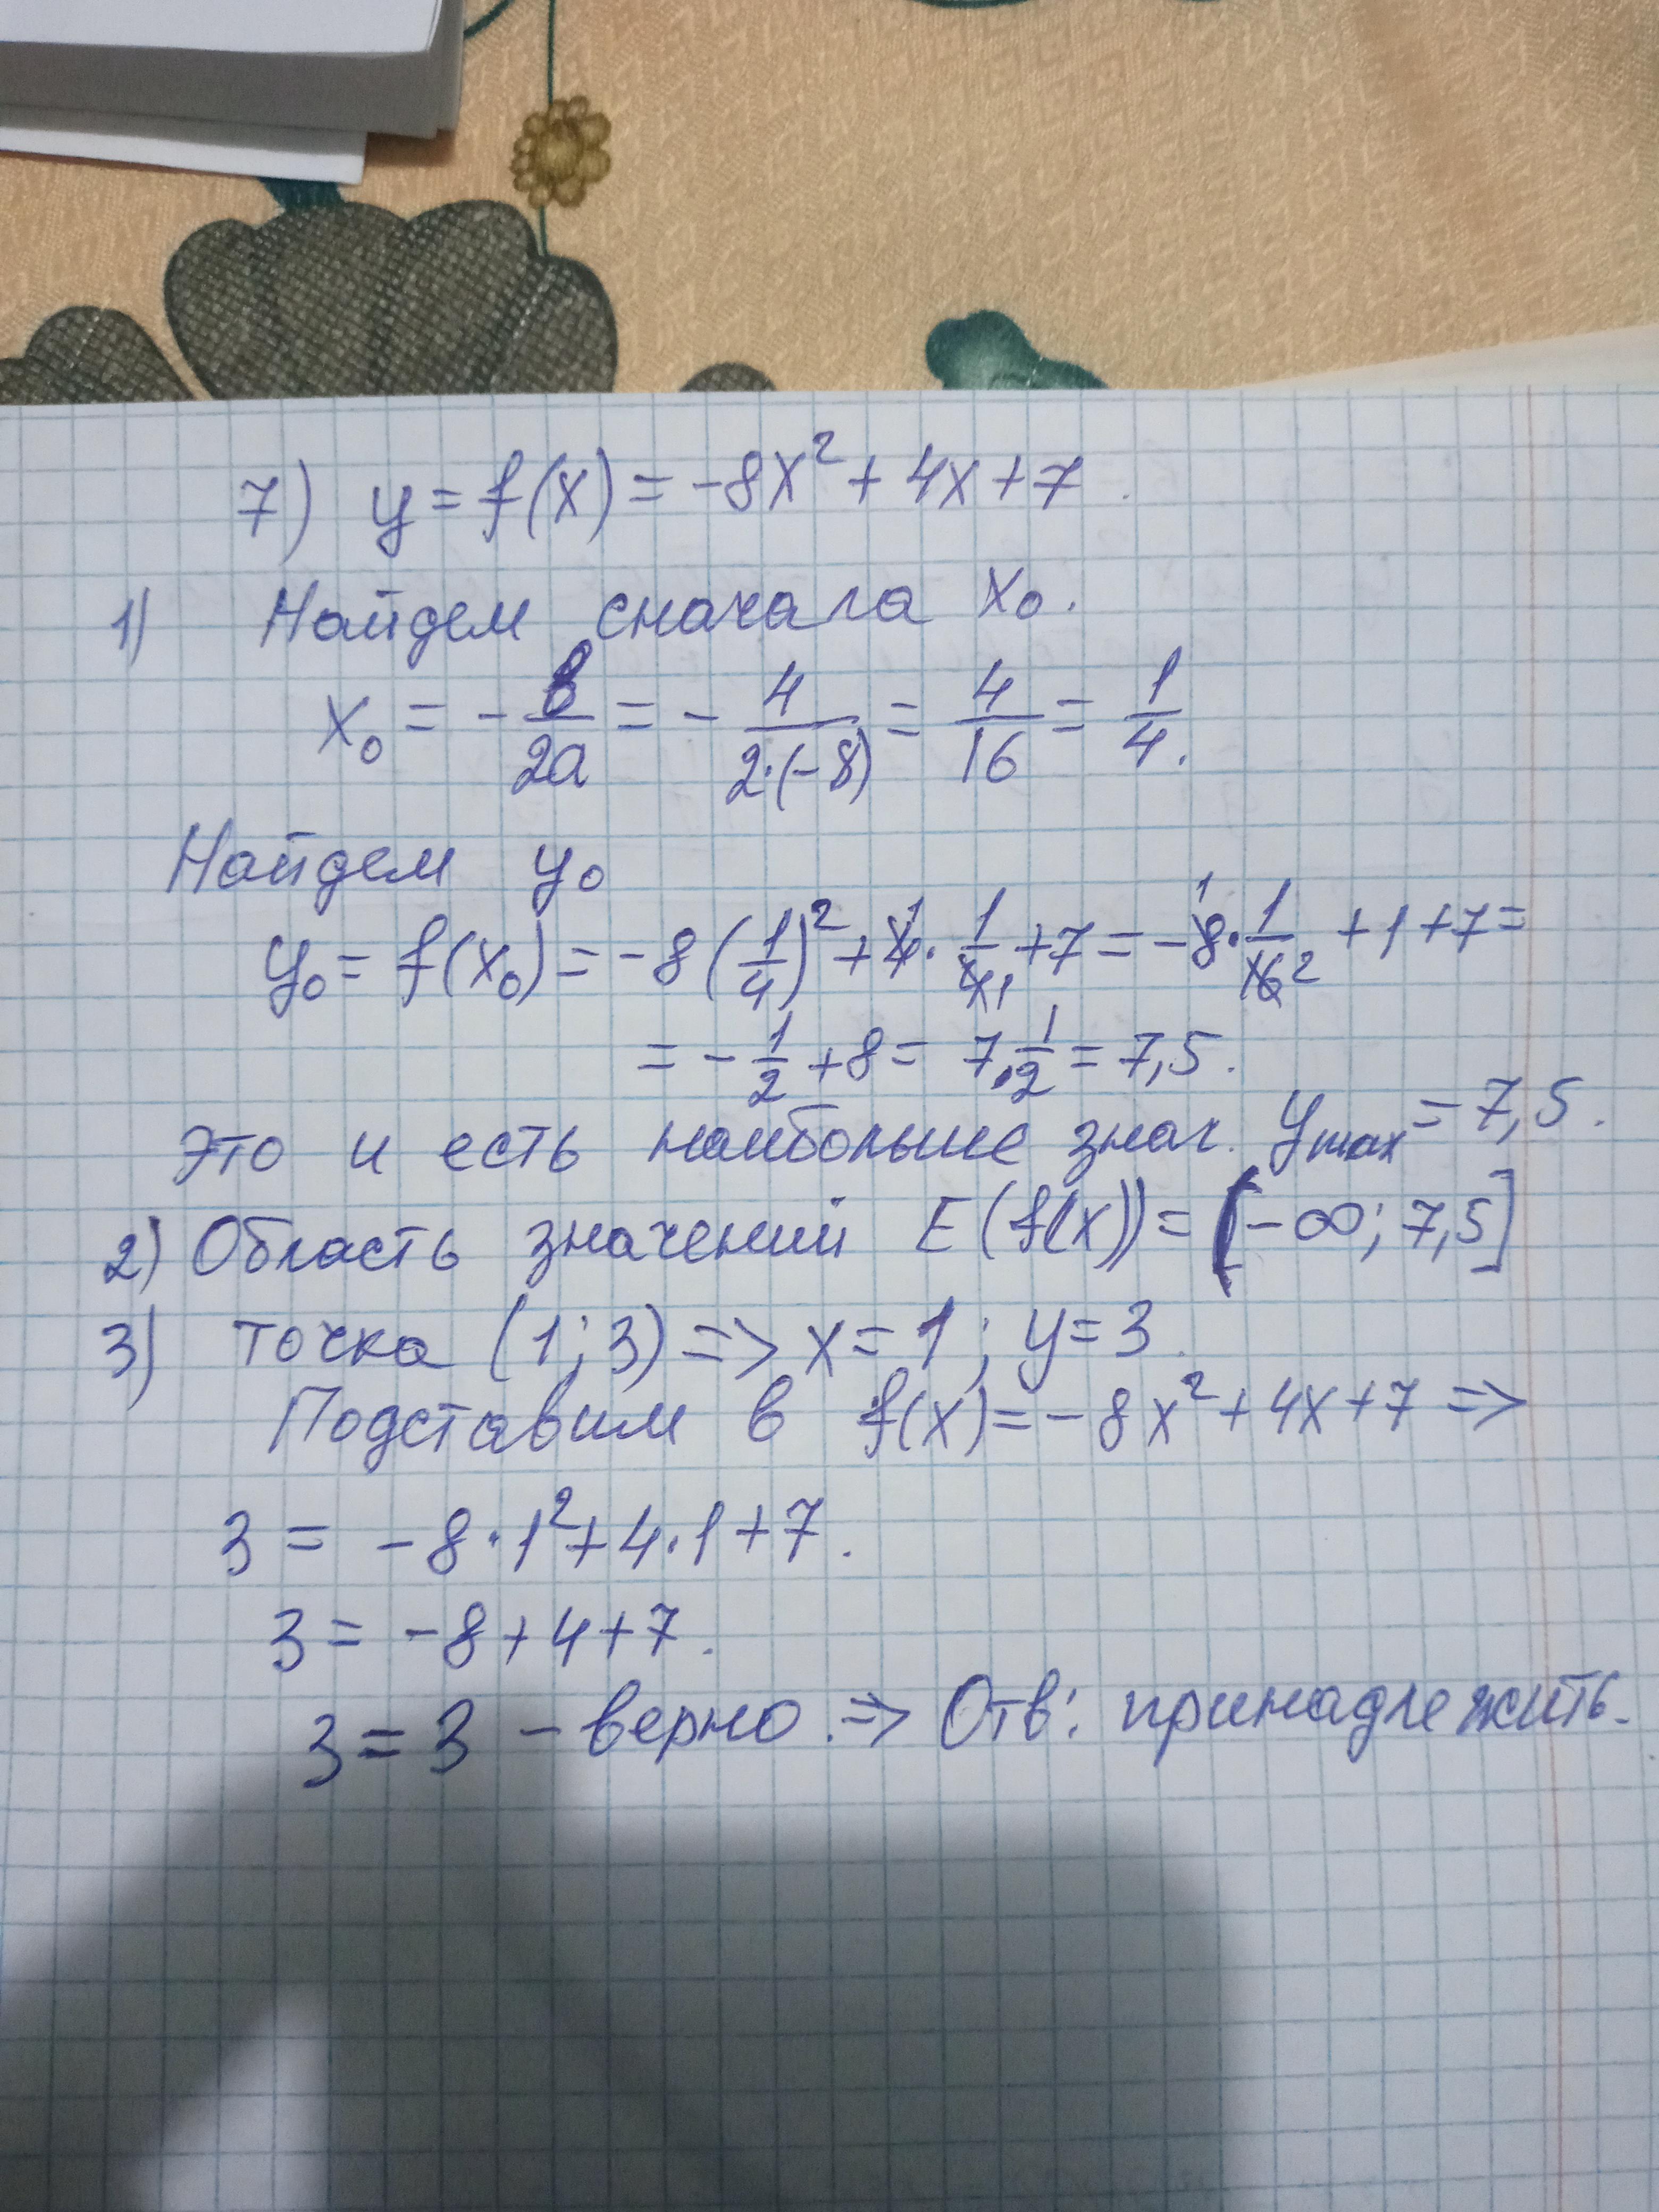 7) y = f(x) = -8x² + 4x + 7.
1) Найдем сначала x₀.
x₀ = - в/2a = - 4/(2·(-8)) = 4/16 = 1/4.
Найдем y₀
y₀ = f(x₀) = -8(1/4)² + 4¹·1/4₁ + 7 = -8¹·1/16₂ + 1 + 7 =
= - 1/2 + 8 = 7 1/2 = 7,5.
Это и есть наибольше знач. y max = 7,5.
2) Область значений E(f(x)) = (-∞; 7,5]
3) точка (1; 3) => x = 1; y = 3.
Подставим в f(x) = -8x² + 4x + 7 =>
3 = -8·1² + 4·1 + 7.
3 = -8 + 4 + 7.
3 = 3 - верно. => Отв: принадлежить.